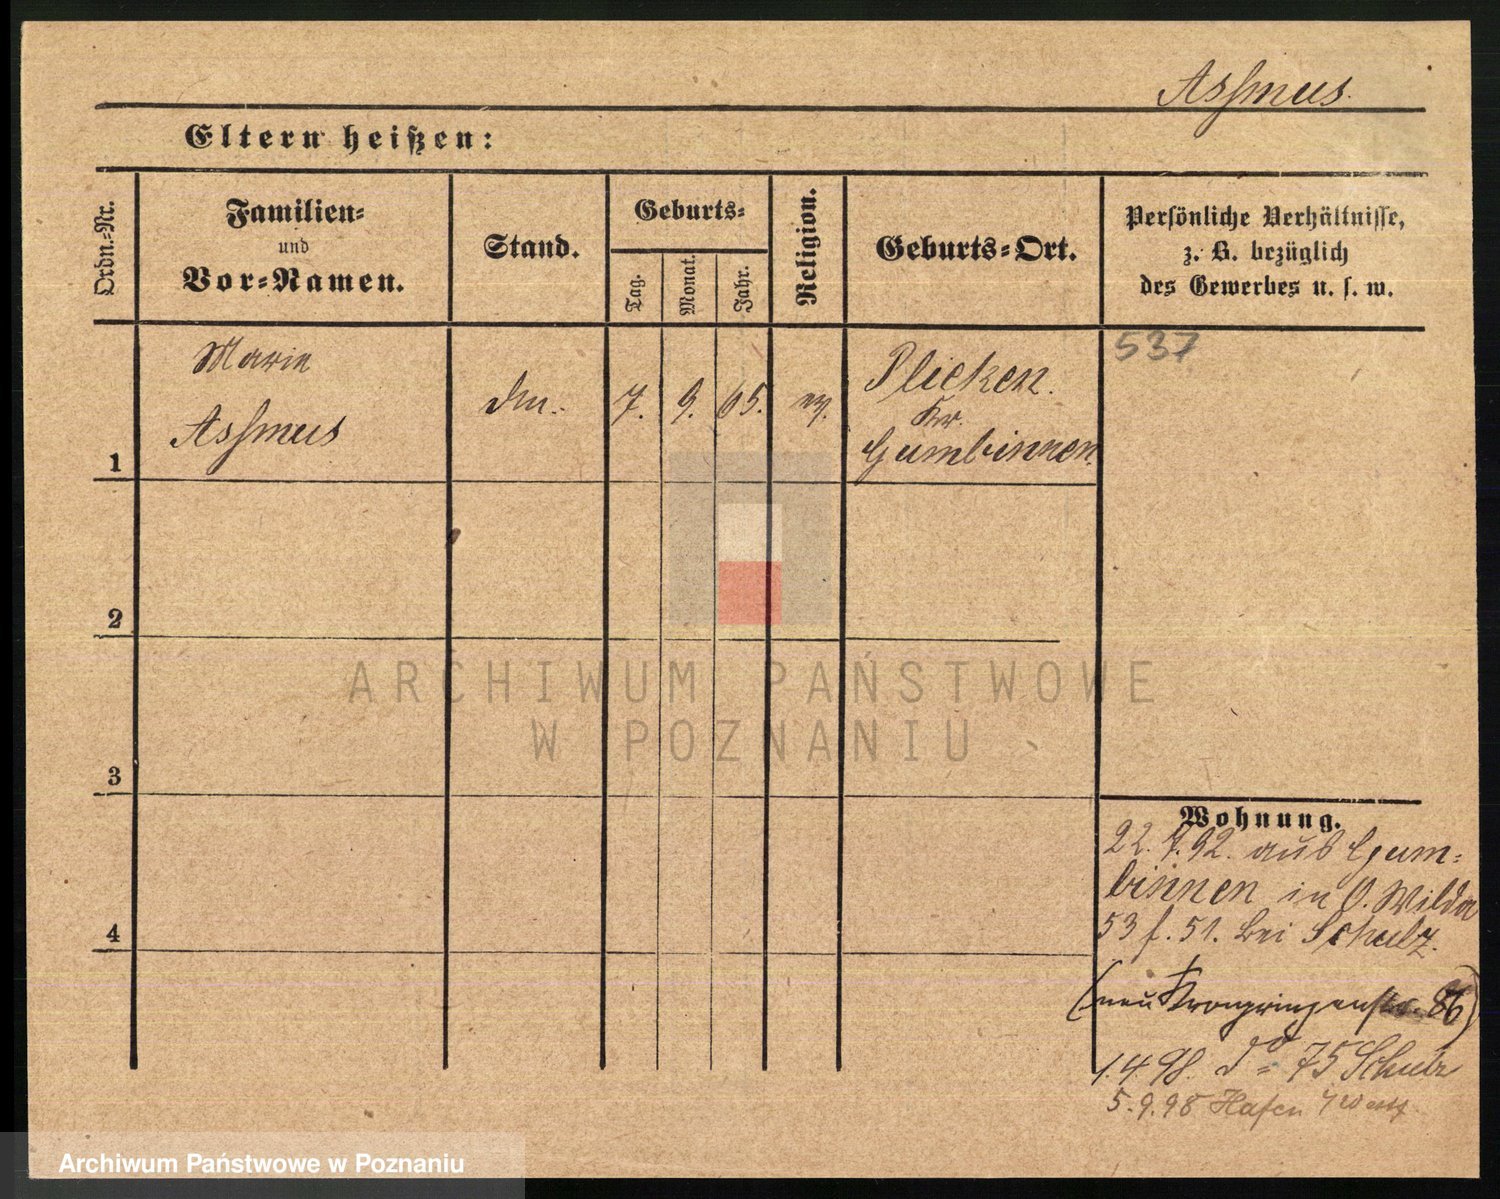 Assmus.
Eltern heißen:
Ordn.-Nr.
Familien-
und
Vor-Namen.
Stand.
Geburts-
Tag.
Monat.
Jahr.
Religion.
Geburts-Ort.
Persönliche Verhältnisse,
z. B. bezüglich
des Gewerbes u. s. w.
1
Marie
Assmus
7.
9.
65.
ev.
Plicken.
Kr.
Gumbinnen.
537
2
3
4
ARCHIWUM PAŃSTWOWE
W POZNANIU
Wohnung.
22.7.92. aus Gum-
binnen in O. Wilda
53 f. 51. bei Schulz.
(neu Kronprinzenstr. 86)
1.4.98. do 75 Schulz
5.9.98 Hafen
Archiwum Państwowe w Poznaniu